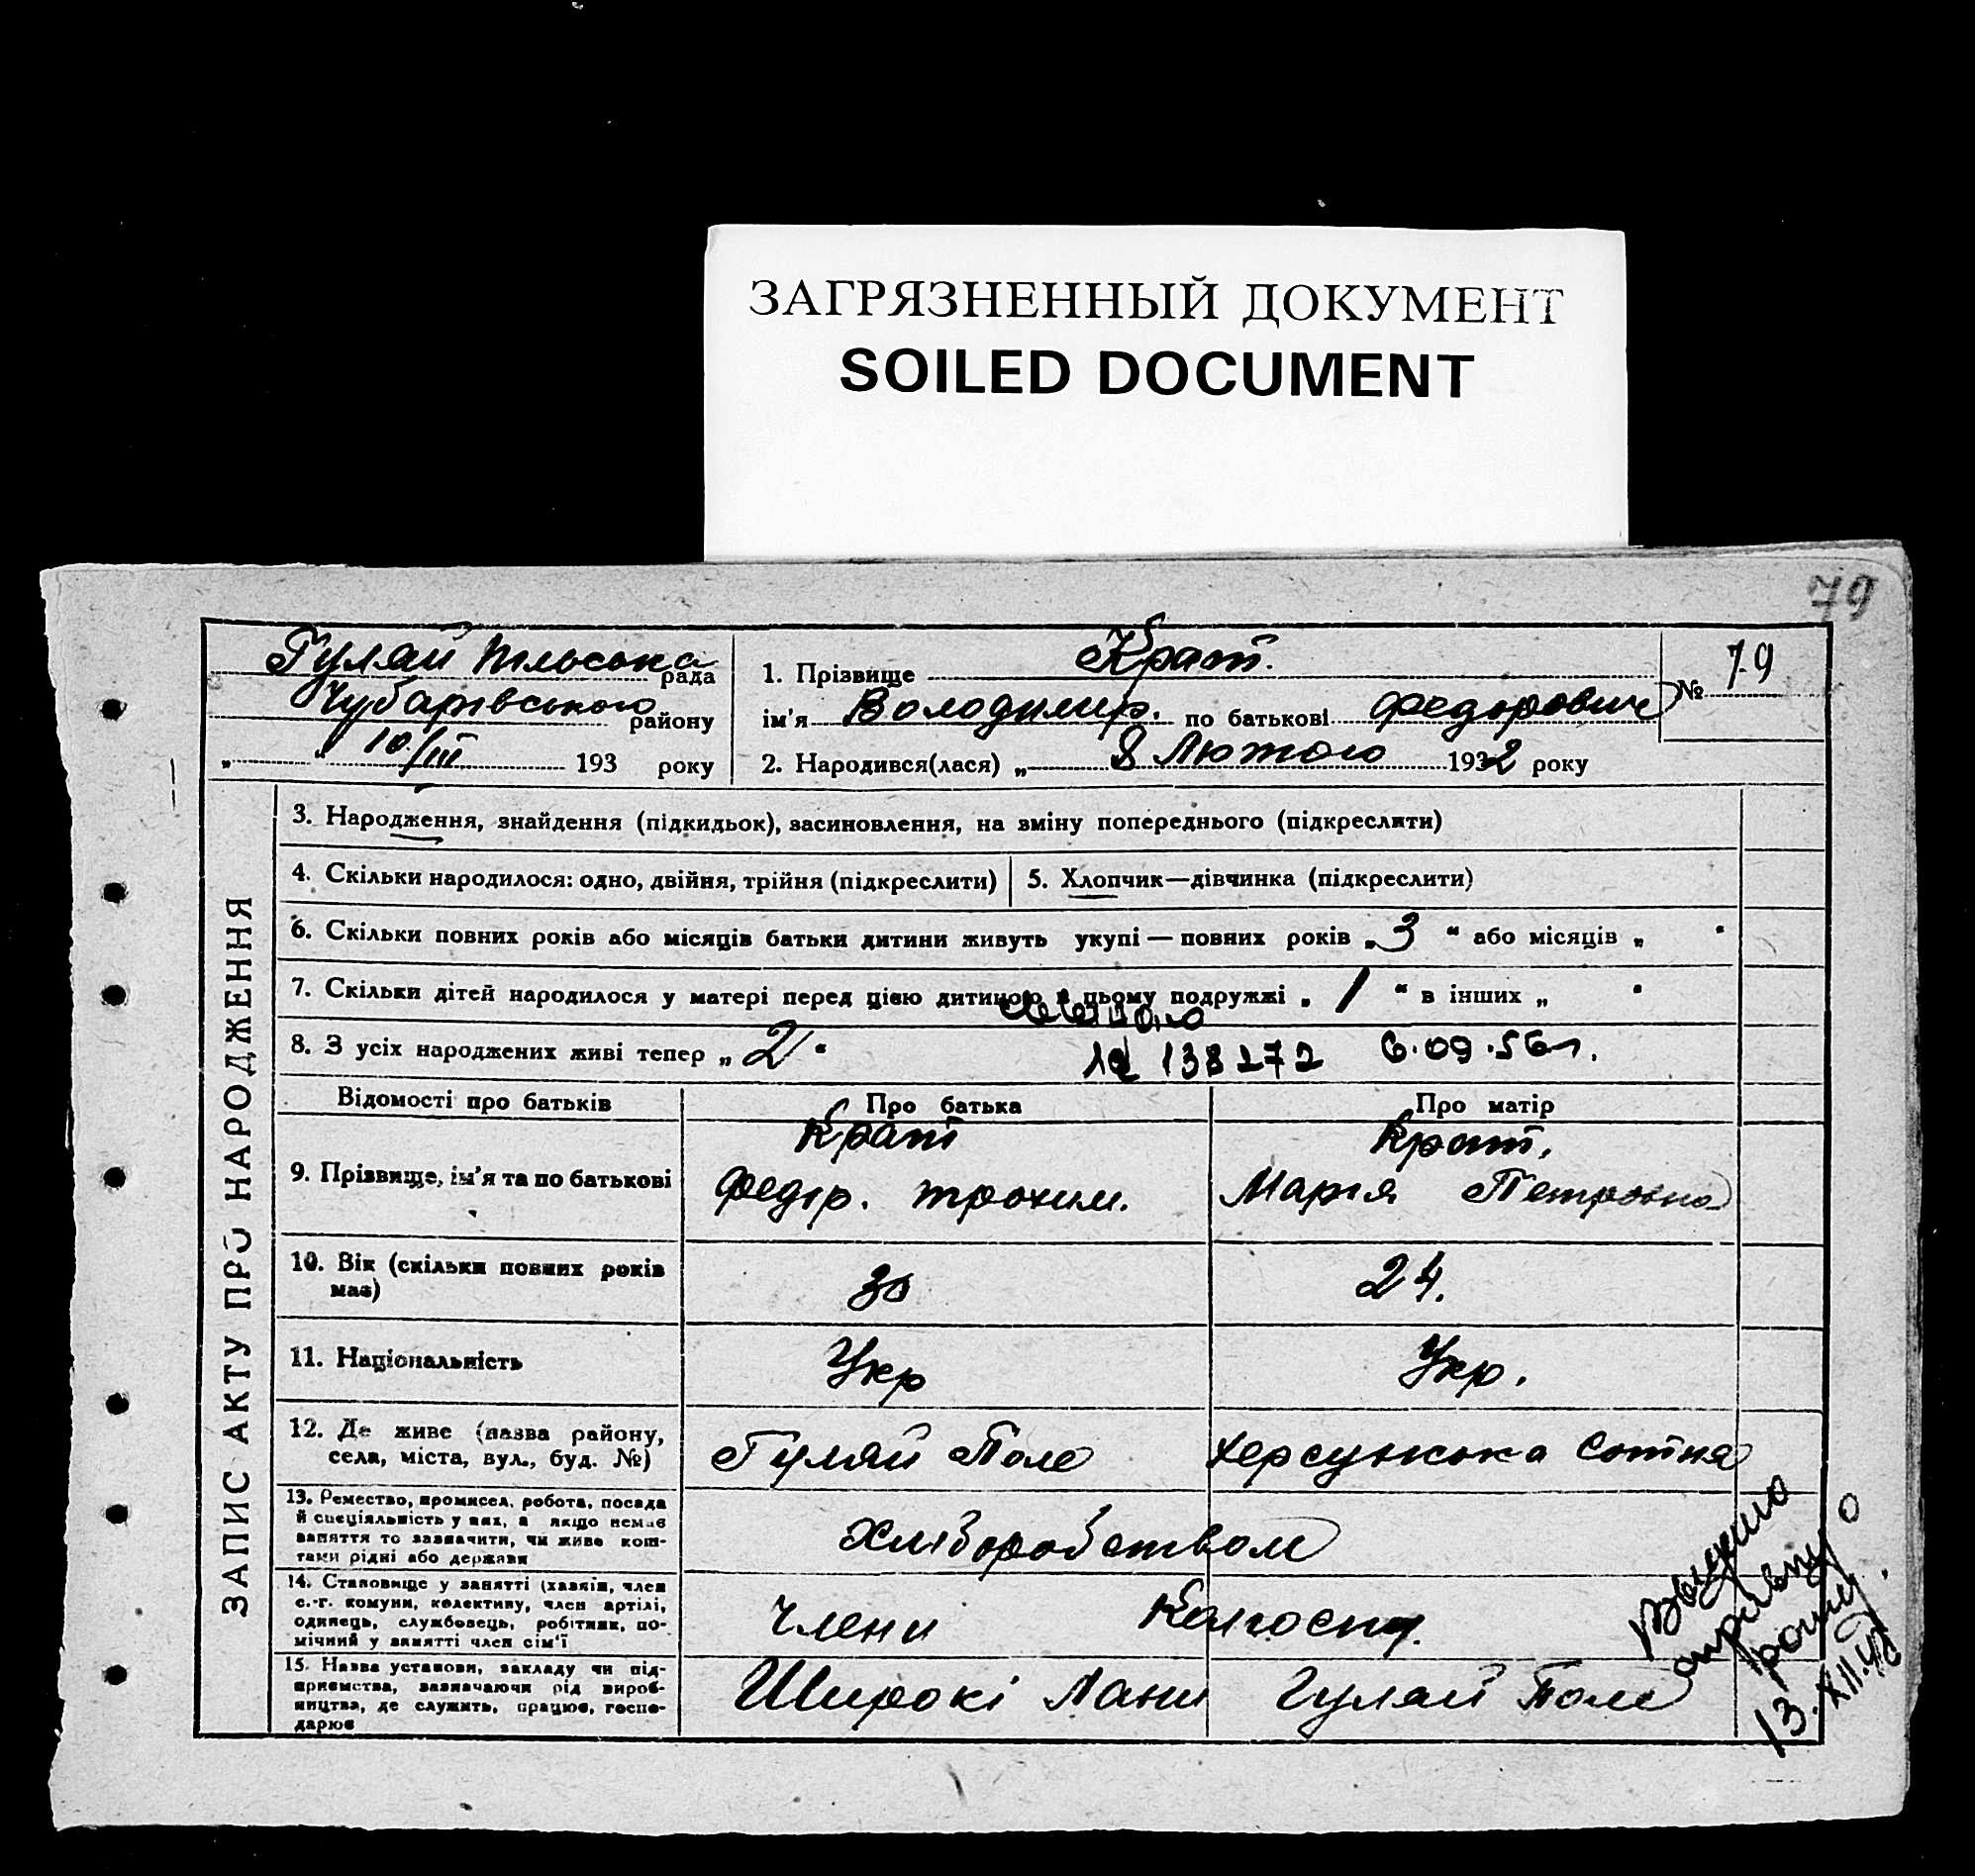 ЗАГРЯЗНЕННЫЙ ДОКУМЕНТ
SOILED DOCUMENT
79
Гуляй Пільська рада
Чубарівського району
„ “ 10/III 193 року
1. Прізвище Крат.
ім'я Володимир. по батькові Федорович
№ 79
2. Народився(лася) „ 8 Лютого 1932 року
ЗАПИС АКТУ ПРО НАРОДЖЕННЯ
3. Народження, знайдення (підкидьок), засиновлення, на зміну попереднього (підкреслити)
4. Скільки народилося: одно, двійня, трійня (підкреслити)
5. Хлопчик—дівчинка (підкреслити)
6. Скільки повних років або місяців батьки дитини живуть укупі — повних років „ 3 “ або місяців „ “
7. Скільки дітей народилося у матері перед цією дитиною в цьому подружжі „ 1 “ в інших „ “
8. З усіх народжених живі тепер „ 2 “
138272 6.09.56г.
Відомості про батьків
Про батька
Про матір
9. Прізвище, ім'я та по батькові
Крат
Федір. Трохим.
Крат,
Марія Петровна
10. Вік (скільки повних років
має)
30
24.
11. Національність
Укр
Укр.
12. Де живе (назва району,
села, міста, вул., буд. №)
Гуляй Поле
Херсунська Сотня
13. Ремество, промисел, робота, посада
й спеціяльність у них, а якщо немає
заняття то зазначити, чи живе кош-
тами рідні або держави
Хліборобством
14. Становище у занятті (хазяїн, член
с.-г. комуни, колективу, член артілі,
одинець, службовець, робітник, по-
мічний у занятті член сім'ї
Члени Колгоспу.
15. Назва установи, закладу чи під-
приємства, зазначаючи рід вироб-
ництва, де служить, працює, госпо-
дарює
Широкі Лани Гуляй Поле
13.XII.48